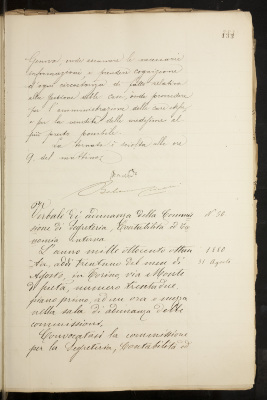 131
Genova onde assumere le necessarie
informazioni e prendere cognizione
di ogni circostanza di fatto relativa
alla gestione delle case, onde provvedere
per l'amministrazione delle case stesse,
e per la vendita delle medesime al
più presto possibile.
La tornata è sciolta alle ore
9 del mattino.
Verbale di adunanza della Commis
sione di Segreteria, Contabilità ed Eco
nomia interna
N° 50
L'anno mille ottocento ottan
ta, addì trentuno del mese di
Agosto, in Torino, via Monte
di pietà, numero trentadue,
piano primo, ad un ora e mezza
nella sala di adunanza delle
commissioni.
1880
31 Agosto
Convocatasi la commissione
per la Segreteria, Contabilità ed